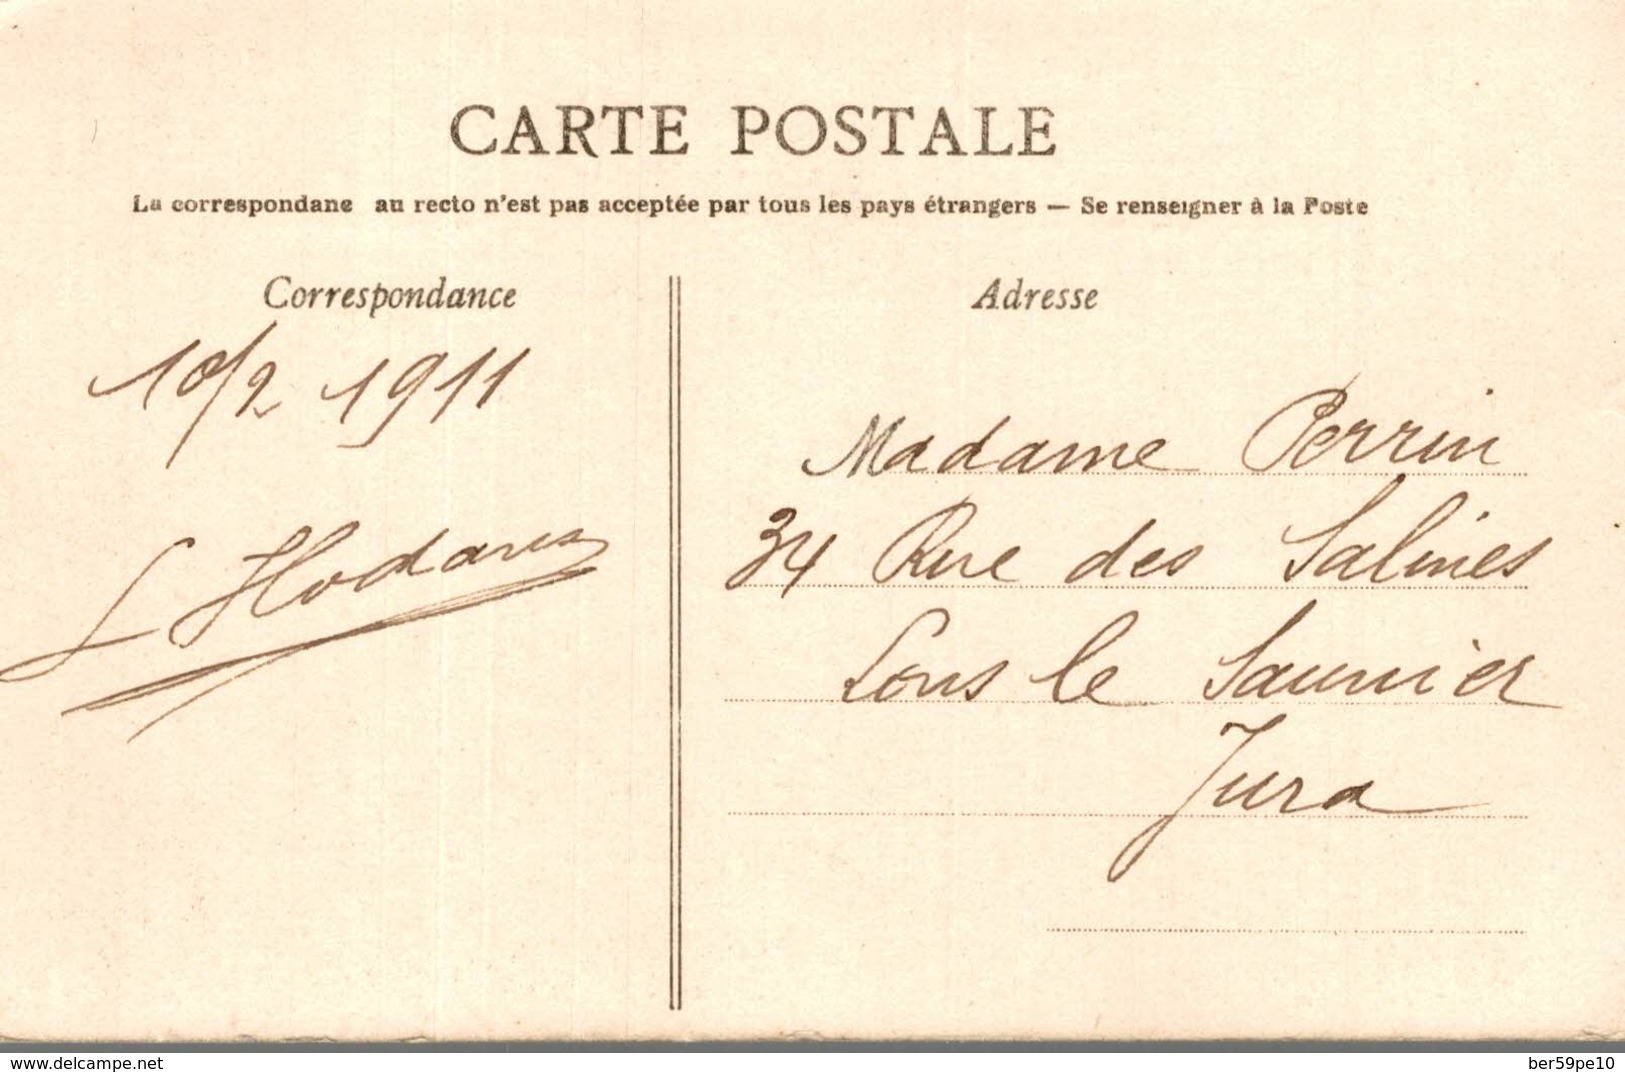 CARTE POSTALE
La correspondane au recto n'est pas acceptée par tous les pays étrangers — Se renseigner à la Poste
Correspondance
10/2 1911
L Hodares
Adresse
Madame Perrin
34 Rue des Salines
Lons le Saunier
Jura
www.delcampe.net
ber59pe10